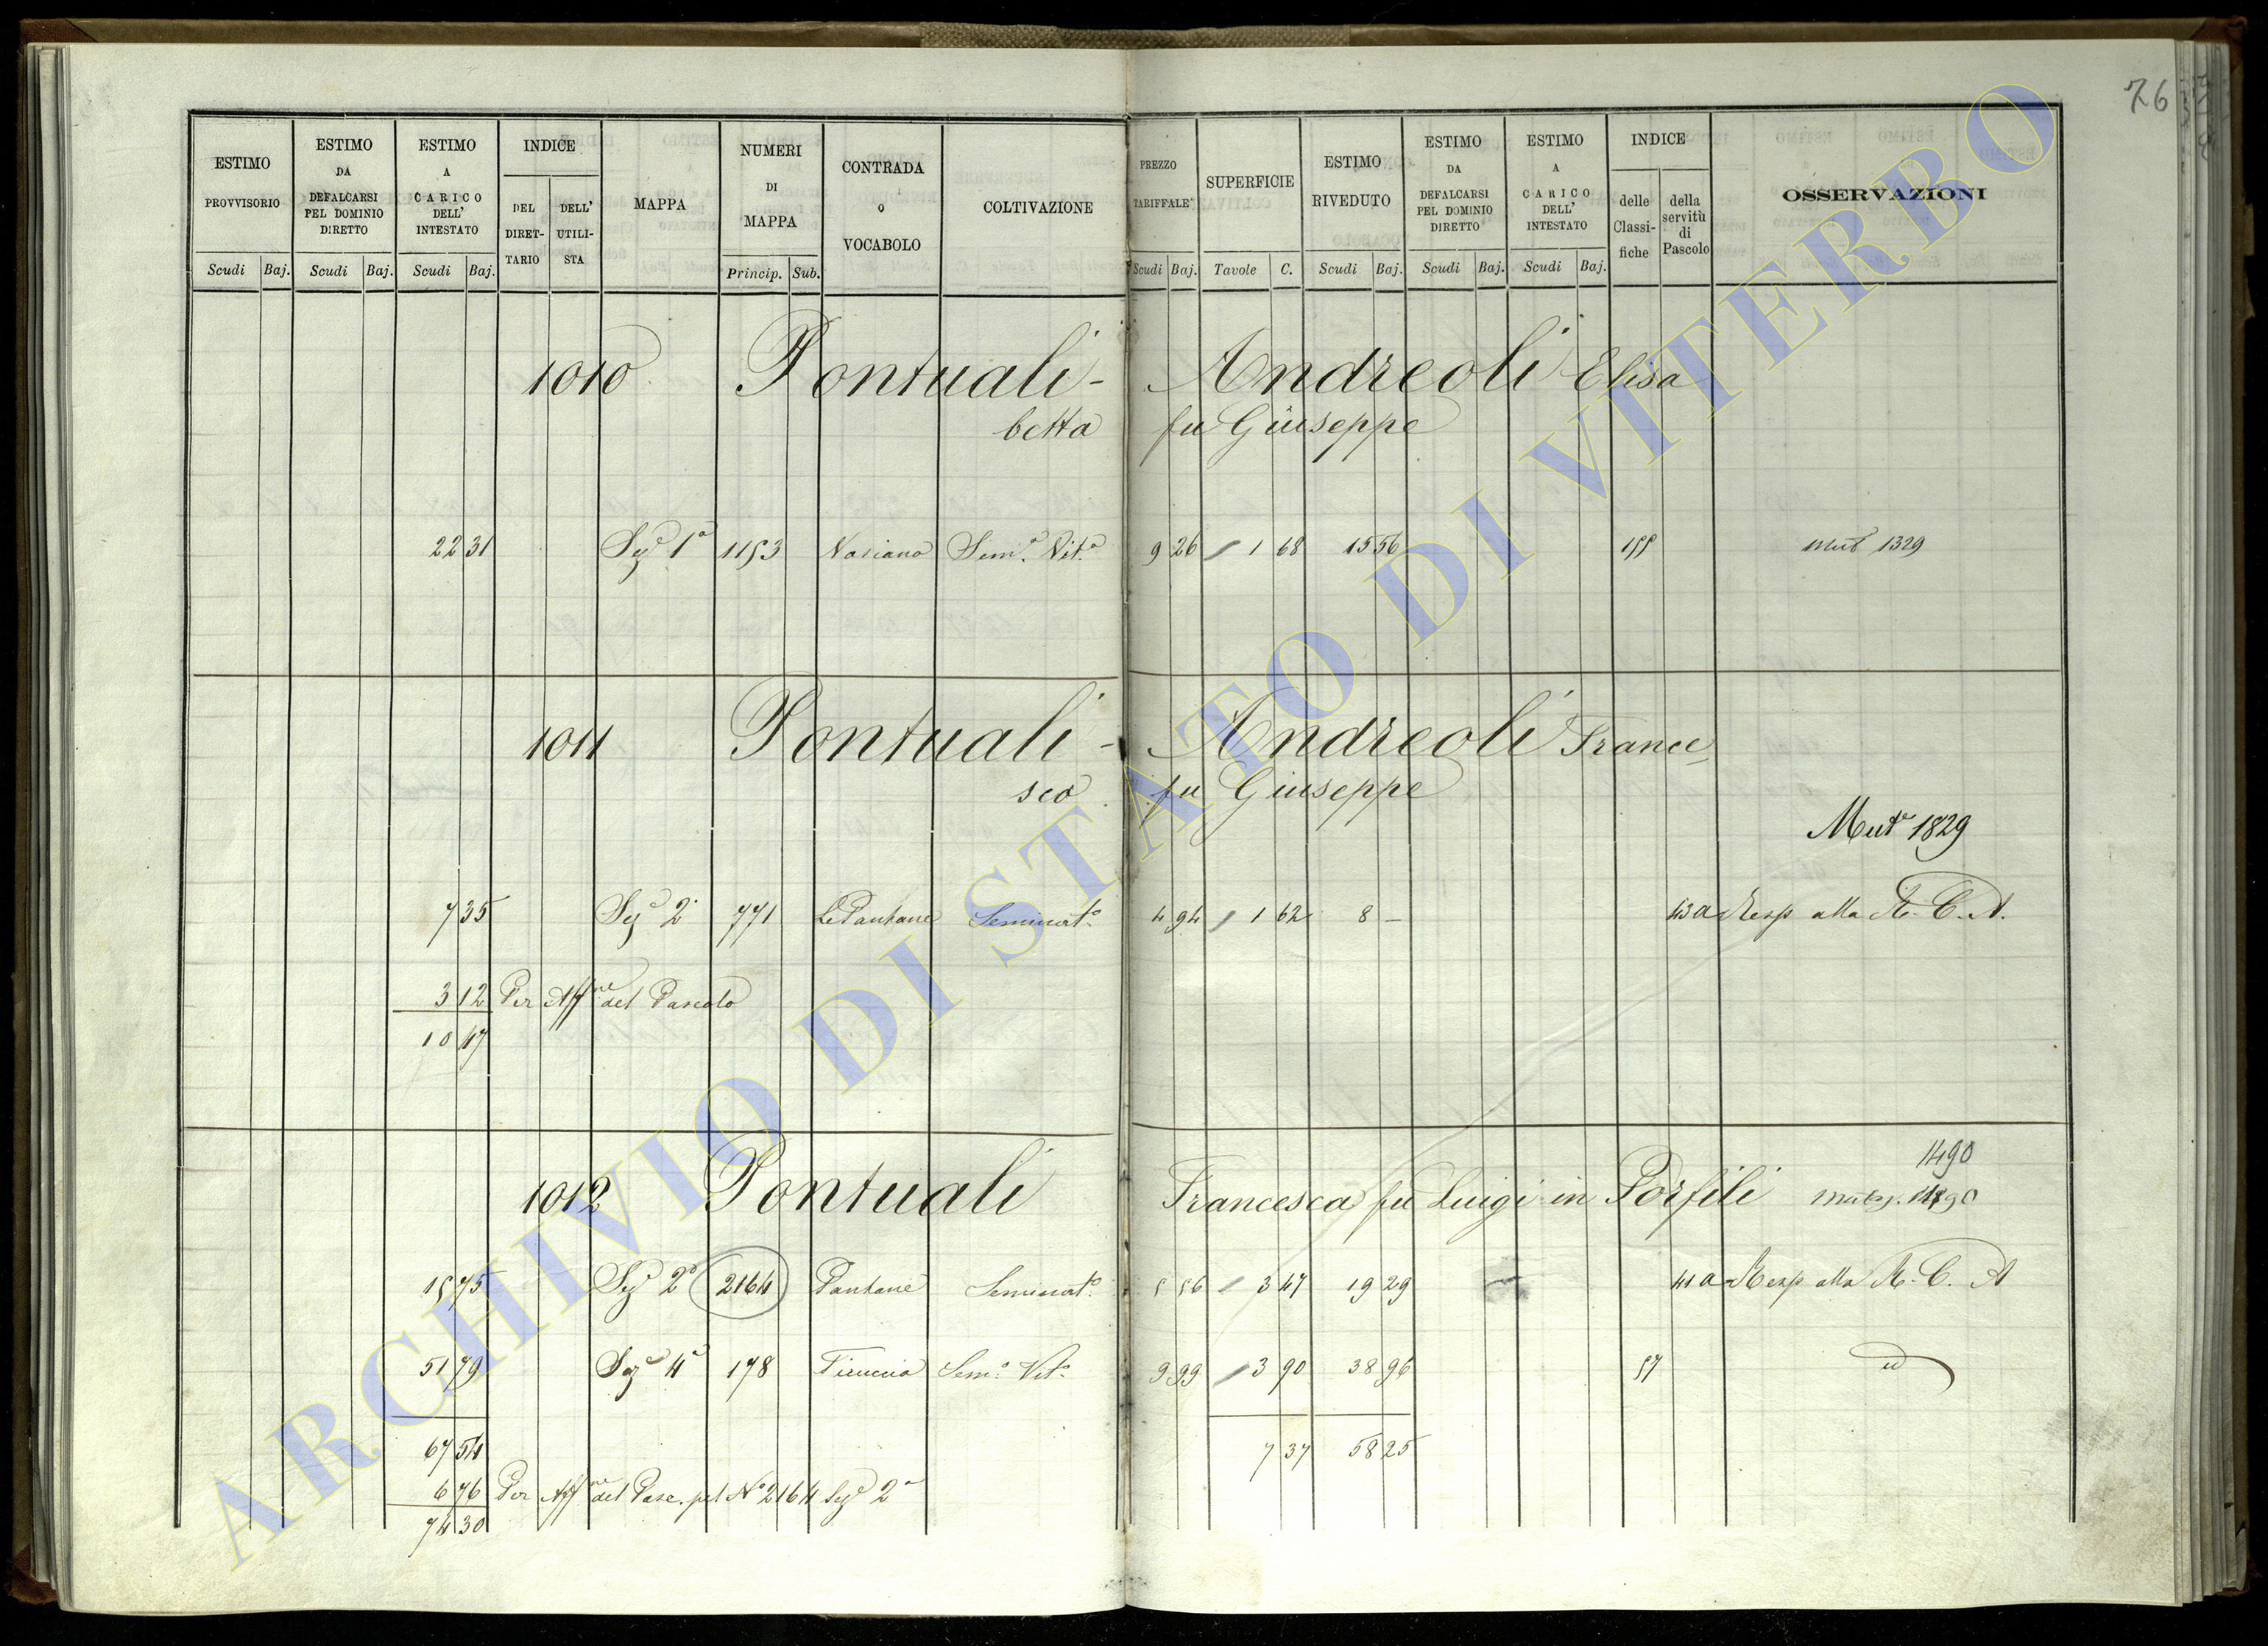 76
ESTIMO PROVVISORIO
ESTIMO DA DEFALCARSI PEL DOMINIO DIRETTO
ESTIMO A CARICO DELL' INTESTATO
INDICE
DEL DIRETTARIO
DELL' UTILISTA
MAPPA
NUMERI DI MAPPA
CONTRADA O VOCABOLO
COLTIVAZIONE
PREZZO TARIFFALE
SUPERFICIE
ESTIMO RIVEDUTO
ESTIMO DA DEFALCARSI PEL DOMINIO DIRETTO
ESTIMO A CARICO DELL' INTESTATO
INDICE
delle Classifiche
della servitù di Pascolo
OSSERVAZIONI
Scudi Baj. Scudi Baj. Scudi Baj. Princip. Sub. Scudi Baj. Tavole C. Scudi Baj. Scudi Baj. Scudi Baj.
1010 Pontuali - Andreoli Elisa
betta fu Giuseppe
22 31 Sezᵉ 1ª 1153 Nasiano Semᵒ Vitᵒ 9 26 1 68 15 56 155 Mut 1329
1011 Pontuali - Andreoli France
sco fu Giuseppe
Mutᵉ 1829
7 35 Sezᵉ 2ª 771 Le Pantane Seminatᵒ 4 94 1 62 8 — 43 a Resp alla R. C. A.
3 12 Per Affⁿᵉ del Pascolo
10 47
1490
1012 Pontuali Francesca fu Luigi in Porfili 1490
15 75 Sezᵉ 2ª 2164 Pantane Seminatᵒ 5 56 3 47 19 29 41 a Resp alla R. C. A
51 79 Sezᵉ 4ª 178 Ficuccia Semᵒ Vitᵒ 9 99 3 90 38 96 57 id
67 54 7 37 58 25
6 76 Per Affⁿᵉ del Pasc. pel Nᵒ 2164 Sezᵉ 2ª
74 30
ARCHIVIO DI STATO DI VITERBO